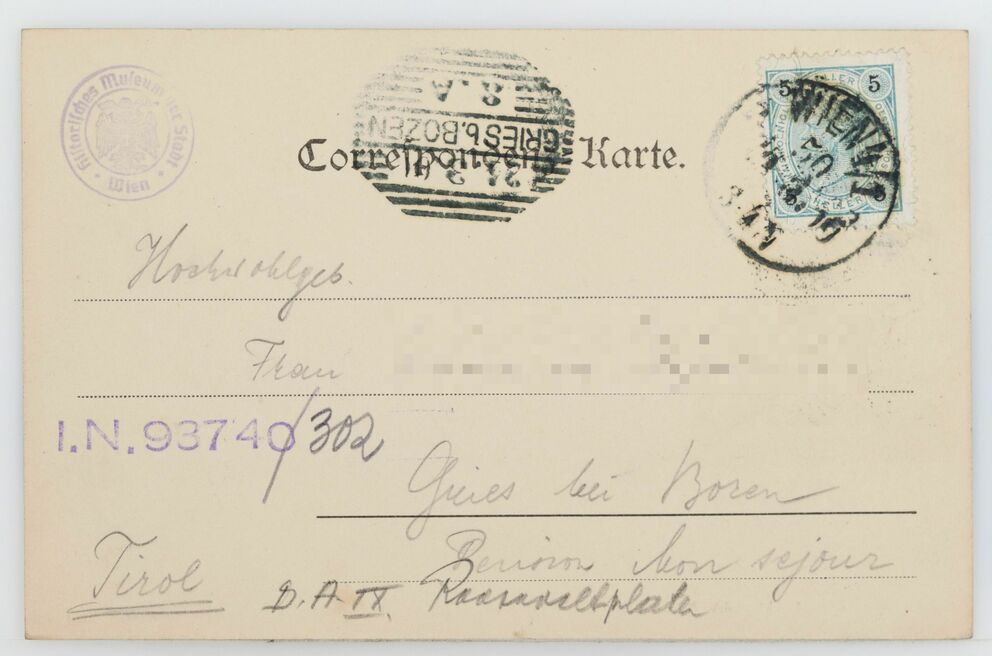 Historisches Museum der Stadt Wien
GRIES b. BOZEN
2.A
Correspondenz-Karte.
5 5
WIEN 1/1
Hochwohlgeb.
Frau
I.N. 93740/302
Gries bei Bozen
Pension Mon sejour
Tirol
D.A IX Rooseveltplatz